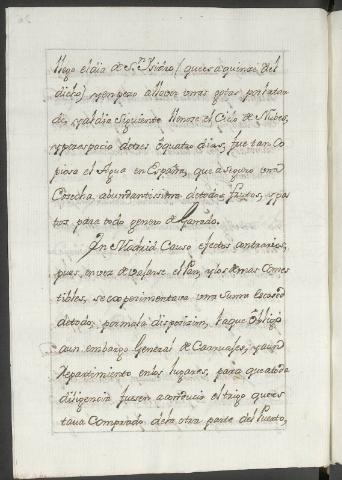 llego el dia de S.n Isidro (que es a quince del
dicho) y empezo a llover unas gotas por la tar
de, y al dia siguiente llenose el Cielo de Nubes,
y por espacio de tres ò quatro dias, fue tan Co
piosa el Agua en España, que aseguro una
Cosecha abundantissima de todos frutos, y pas
tos para todo genero de Ganado.
En Madrid Causo efectos contrarios,
pues en vez de vajarse el Pan, y los demas Comes
tibles, se experimentava una Suma Escasez
de todo, por mala disposicion, lo que Obligo
a un embargo General de Carruajes, y a un
Repartimiento en los lugares, para que a toda
diligencia fuesen a conducir el trigo que es
tava Comprado de la otra parte del Puerto,